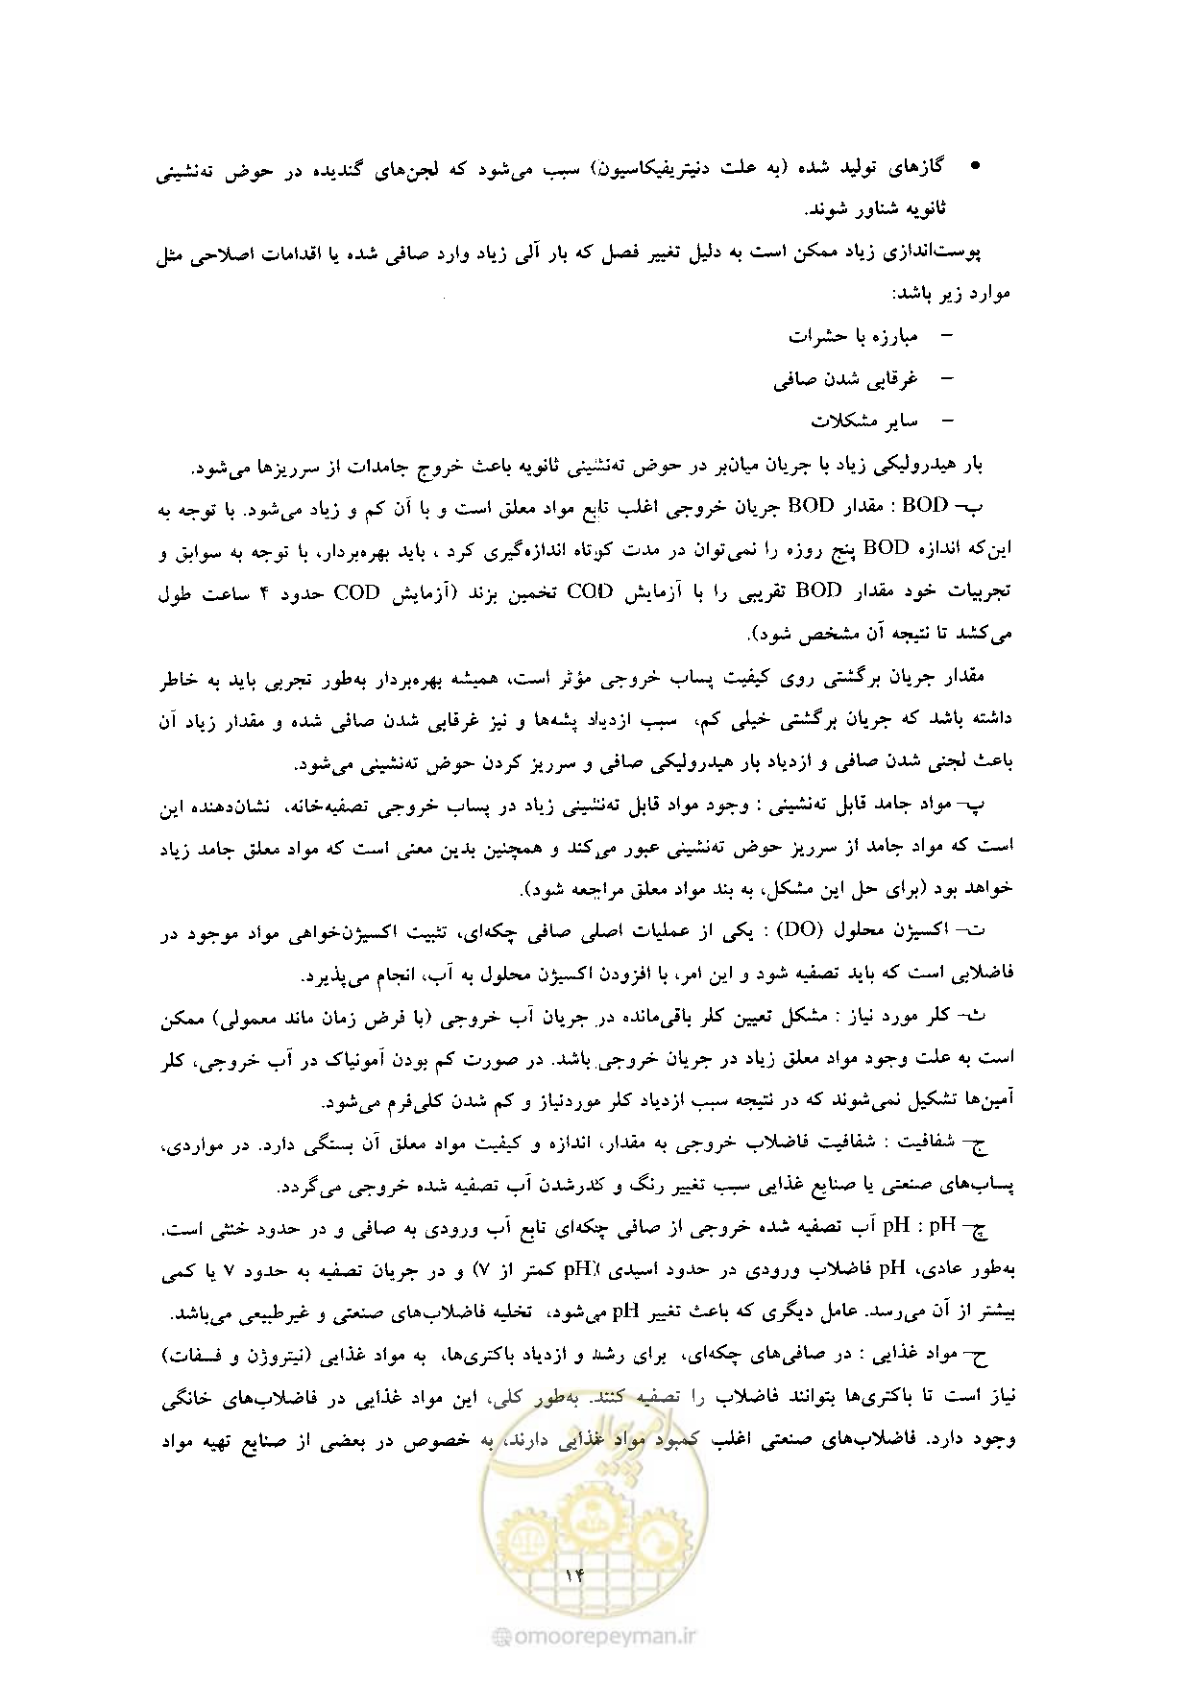 • گازهای تولید شده (به علت دنیتریفیکاسیون) سبب می‌شود که لجن‌های گندیده در حوض ته‌نشینی
ثانویه شناور شوند.
پوست‌اندازی زیاد ممکن است به دلیل تغییر فصل که بار آلی زیاد وارد صافی شده یا اقدامات اصلاحی مثل
موارد زیر باشد:
– مبارزه با حشرات
– غرقابی شدن صافی
– سایر مشکلات
بار هیدرولیکی زیاد با جریان میان‌بر در حوض ته‌نشینی ثانویه باعث خروج جامدات از سرریزها می‌شود.
ب– BOD : مقدار BOD جریان خروجی اغلب تابع مواد معلق است و با آن کم و زیاد می‌شود. با توجه به
این‌که اندازه BOD پنج روزه را نمی‌توان در مدت کوتاه اندازه‌گیری کرد ، باید بهره‌بردار، با توجه به سوابق و
تجربیات خود مقدار BOD تقریبی را با آزمایش COD تخمین بزند (آزمایش COD حدود ۴ ساعت طول
می‌کشد تا نتیجه آن مشخص شود).
مقدار جریان برگشتی روی کیفیت پساب خروجی مؤثر است، همیشه بهره‌بردار به‌طور تجربی باید به خاطر
داشته باشد که جریان برگشتی خیلی کم، سبب ازدیاد پشه‌ها و نیز غرقابی شدن صافی شده و مقدار زیاد آن
باعث لجنی شدن صافی و ازدیاد بار هیدرولیکی صافی و سرریز کردن حوض ته‌نشینی می‌شود.
پ– مواد جامد قابل ته‌نشینی : وجود مواد قابل ته‌نشینی زیاد در پساب خروجی تصفیه‌خانه، نشان‌دهنده این
است که مواد جامد از سرریز حوض ته‌نشینی عبور می‌کند و همچنین بدین معنی است که مواد معلق جامد زیاد
خواهد بود (برای حل این مشکل، به بند مواد معلق مراجعه شود).
ت– اکسیژن محلول (DO) : یکی از عملیات اصلی صافی چکه‌ای، تثبیت اکسیژن‌خواهی مواد موجود در
فاضلابی است که باید تصفیه شود و این امر، با افزودن اکسیژن محلول به آب، انجام می‌پذیرد.
ث– کلر مورد نیاز : مشکل تعیین کلر باقی‌مانده در جریان آب خروجی (با فرض زمان ماند معمولی) ممکن
است به علت وجود مواد معلق زیاد در جریان خروجی باشد. در صورت کم بودن آمونیاک در آب خروجی، کلر
آمین‌ها تشکیل نمی‌شوند که در نتیجه سبب ازدیاد کلر موردنیاز و کم شدن کلی‌فرم می‌شود.
ج– شفافیت : شفافیت فاضلاب خروجی به مقدار، اندازه و کیفیت مواد معلق آن بستگی دارد. در مواردی،
پساب‌های صنعتی یا صنایع غذایی سبب تغییر رنگ و کدرشدن آب تصفیه شده خروجی می‌گردد.
چ– pH : pH آب تصفیه شده خروجی از صافی چکه‌ای تابع آب ورودی به صافی و در حدود خنثی است.
به‌طور عادی، pH فاضلاب ورودی در حدود اسیدی (pH کمتر از ۷) و در جریان تصفیه به حدود ۷ یا کمی
بیشتر از آن می‌رسد. عامل دیگری که باعث تغییر pH می‌شود، تخلیه فاضلاب‌های صنعتی و غیرطبیعی می‌باشد.
ح– مواد غذایی : در صافی‌های چکه‌ای، برای رشد و ازدیاد باکتری‌ها، به مواد غذایی (نیتروژن و فسفات)
نیاز است تا باکتری‌ها بتوانند فاضلاب را تصفیه کنند. به‌طور کلی، این مواد غذایی در فاضلاب‌های خانگی
وجود دارد. فاضلاب‌های صنعتی اغلب کمبود مواد غذایی دارند، به خصوص در بعضی از صنایع تهیه مواد
امور پیمان
۱۴
@omoorepeyman.ir